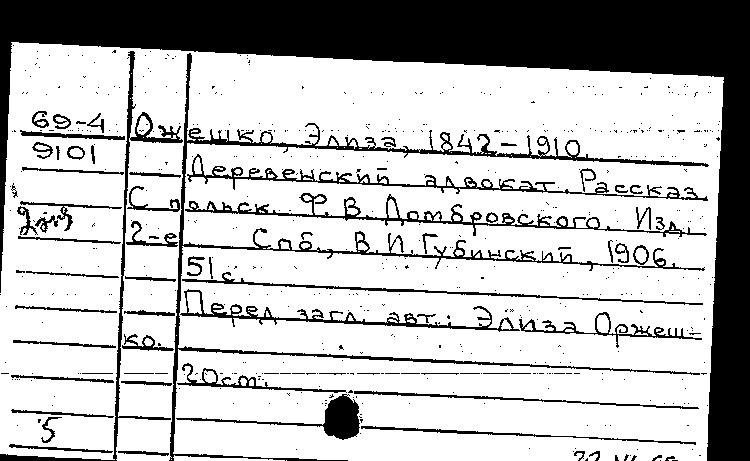 69-4 Ожешко, Элиза, 1842-1910.
9101 Деревенский адвокат. Рассказ.
С польск. Ф. В. Домбровского. Изд.
2-е Спб., В.И.Губинский, 1906.
51 с.
Перед загл. авт.: Элиза Оржеш-
ко.
20см.
5